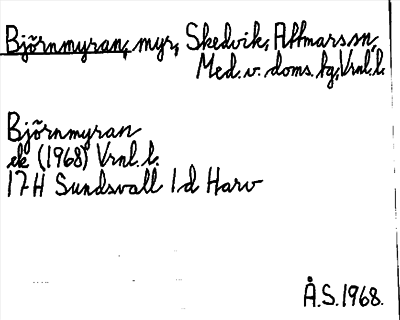 Björnmyran, myr, Skedvik, Attmars sn,
Med. v. doms. tg, Vrnl. l.
Björnmyran
ek (1968) Vrnl. l.
17H Sundsvall 1d Harv
Å.S. 1968.